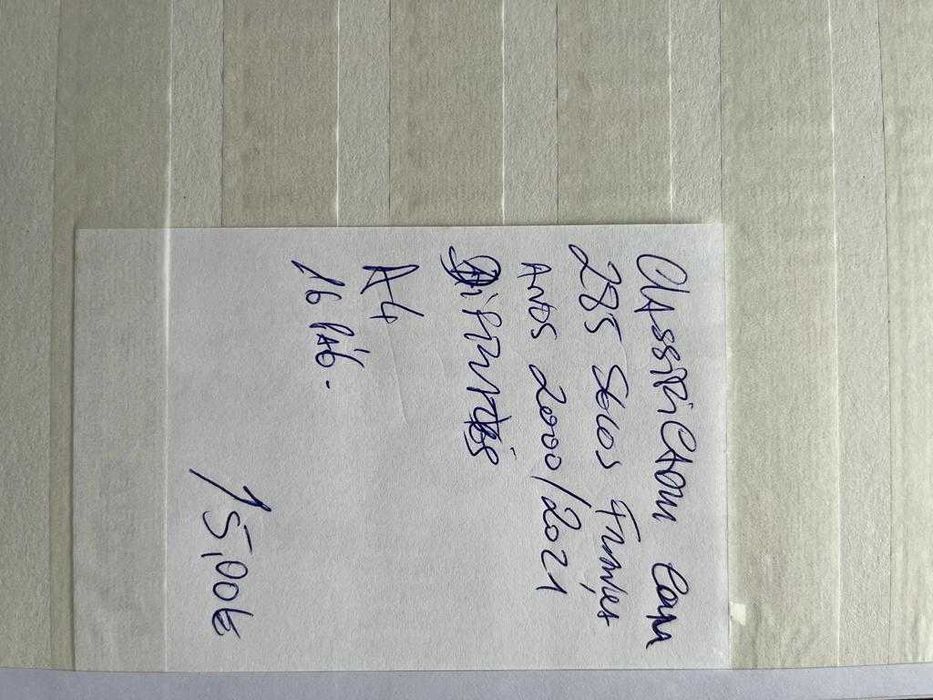 Classificador com
285 Selos Franças
Anos 2000/2021
Difrentes
A4
16 Pág.
15,00€